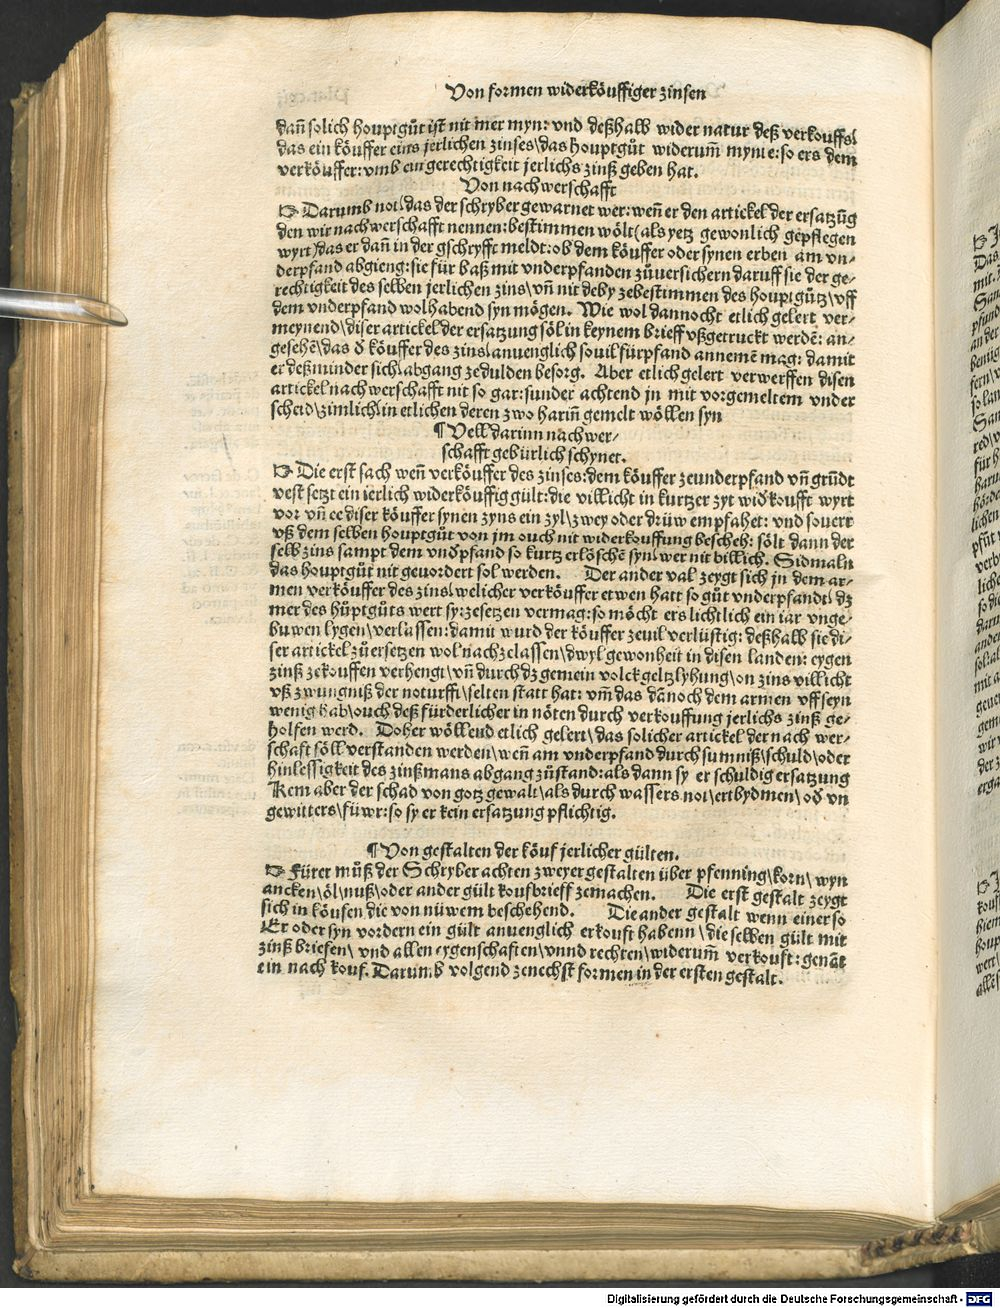 Von formen widerköuffiger zinsen
dañ solich houptgůt ist nit mer myn: vnd deßhalb wider natur deß verkouffs\
das ein köuffer eins jerlichen zinses\das houptgůt widerum̃ mynre: so ers dem
verköuffer: vmb ein gerechtigkeit jerlichs zinß geben hat.
Von nachwerschafft
☞ Darumb not\das der schryber gewarnet wer: weñ er den artickel der ersatzũg
den wir nachwerschafft nennen: bestimmen wölt(als yetz gewonlich gepflegen
wyrt)das er dañ in der gschryfft meldt: ob dem köuffer oder synen erben am vn⸗
derpfand abgieng: sie für baß mit vnderpfanden zůuersichern daruff sie der ge⸗
rechtigkeit des selben jerlichen zins\vñ nit deby zebestimmen des houptgůtz\vff
dem vnderpfand wolhabend syn mögen. Wie wol dannocht etlich gelert ver⸗
meynend\diser artickel der ersatzung söl in keynem brieff vßgetruckt werdẽ: an⸗
gesehẽ\das ď köuffer des zins\anuenglich souil fürpfand annemẽ mag: damit
er deßminder sich\abgang zedulden besorg. Aber etlich gelert verwerffen disen
artickel nachwerschafft nit so gar: sunder achtend jn mit vorgemeltem vnder
scheid\zimlich\in etlichen deren zwo hariñ gemelt wöllen syn
¶ Vell darinn nachwer⸗
schafft gebürlich schyner.
☞ Die erst sach weñ verköuffer des zinses: dem köuffer ze vnderpfand vñ grũdt
vest setzt ein ierlich widerköuffig gült: die villicht in kurtzer zyt wiďkoufft wyrt
vor vñ ee diser köuffer synen zyns ein zyl\zwey oder drüw empfahet: vnd souerr
vß dem selben houptgůt von jm ouch nit widerkouffung bescheh: sölt dann der
selb zins sampt dem vnďpfand so kurtz erlöschẽ syn\wer nit billich. Sidmaln
das houptgůt nit geuordert sol werden. Der ander val zeygt sich in dem ar⸗
men verköuffer des zins\welicher verköuffer etwen hatt so gůt vnderpfandt\dz
mer des hüptgůts wert sy: zesetzen vermag: so möcht ers lichtlich ein iar vnge⸗
buwen lygen\verlassen: damit wurd der köuffer zeuil verlüstig: deßhalb sie di⸗
ser artickel zů ersetzen wol nachzelassen\dwyl gewonheit in disen landen: eygen
zinß zekouffen verhengt\vñ durch dz gemein volck geltzlyhung\on zins villicht
vß zwungniß der noturfft\selten statt hat: vm̃ das dãnoch dem armen vff seyn
wenig hab\ouch deß fürderlicher in nöten durch verkouffung jerlichs zinß ge⸗
holfen werd. Doher wöllend etlich gelert\das solicher artickel der nach wer⸗
schaft söll verstanden werden\weñ am vnderpfand durch sumniß\schuld\oder
hinlessigkeit des zinßmans abgang zůstand: als dann sy er schuldig ersatzung
Kem aber der schad von gotz gewalt\als durch wassers not\ertbydmen\oď vn
gewitters\füwr: so sy er kein ersatzung pflichtig.
¶ Von gestalten der köuf jerlicher gülten.
☞ Fürer můß der Schryber achten zweyer gestalten über pfenning\korn\wyn
ancken\öl\nuß\oder ander gült koufbrieff zemachen. Die erst gestalt zeygt
sich in köufen die von nüwem beschehend. Die ander gestalt wenn einer so
Er oder syn vordern ein gült anuenglich erkouft habenn\die selben gült mit
zinß briefen\vnd allen eygenschaften\vnnd rechten\widerum̃ verkouft: genãt
ein nach kouf. Darumb volgend zenechst formen in der ersten gestalt.
Digitalisierung gefördert durch die Deutsche Forschungsgemeinschaft - DFG